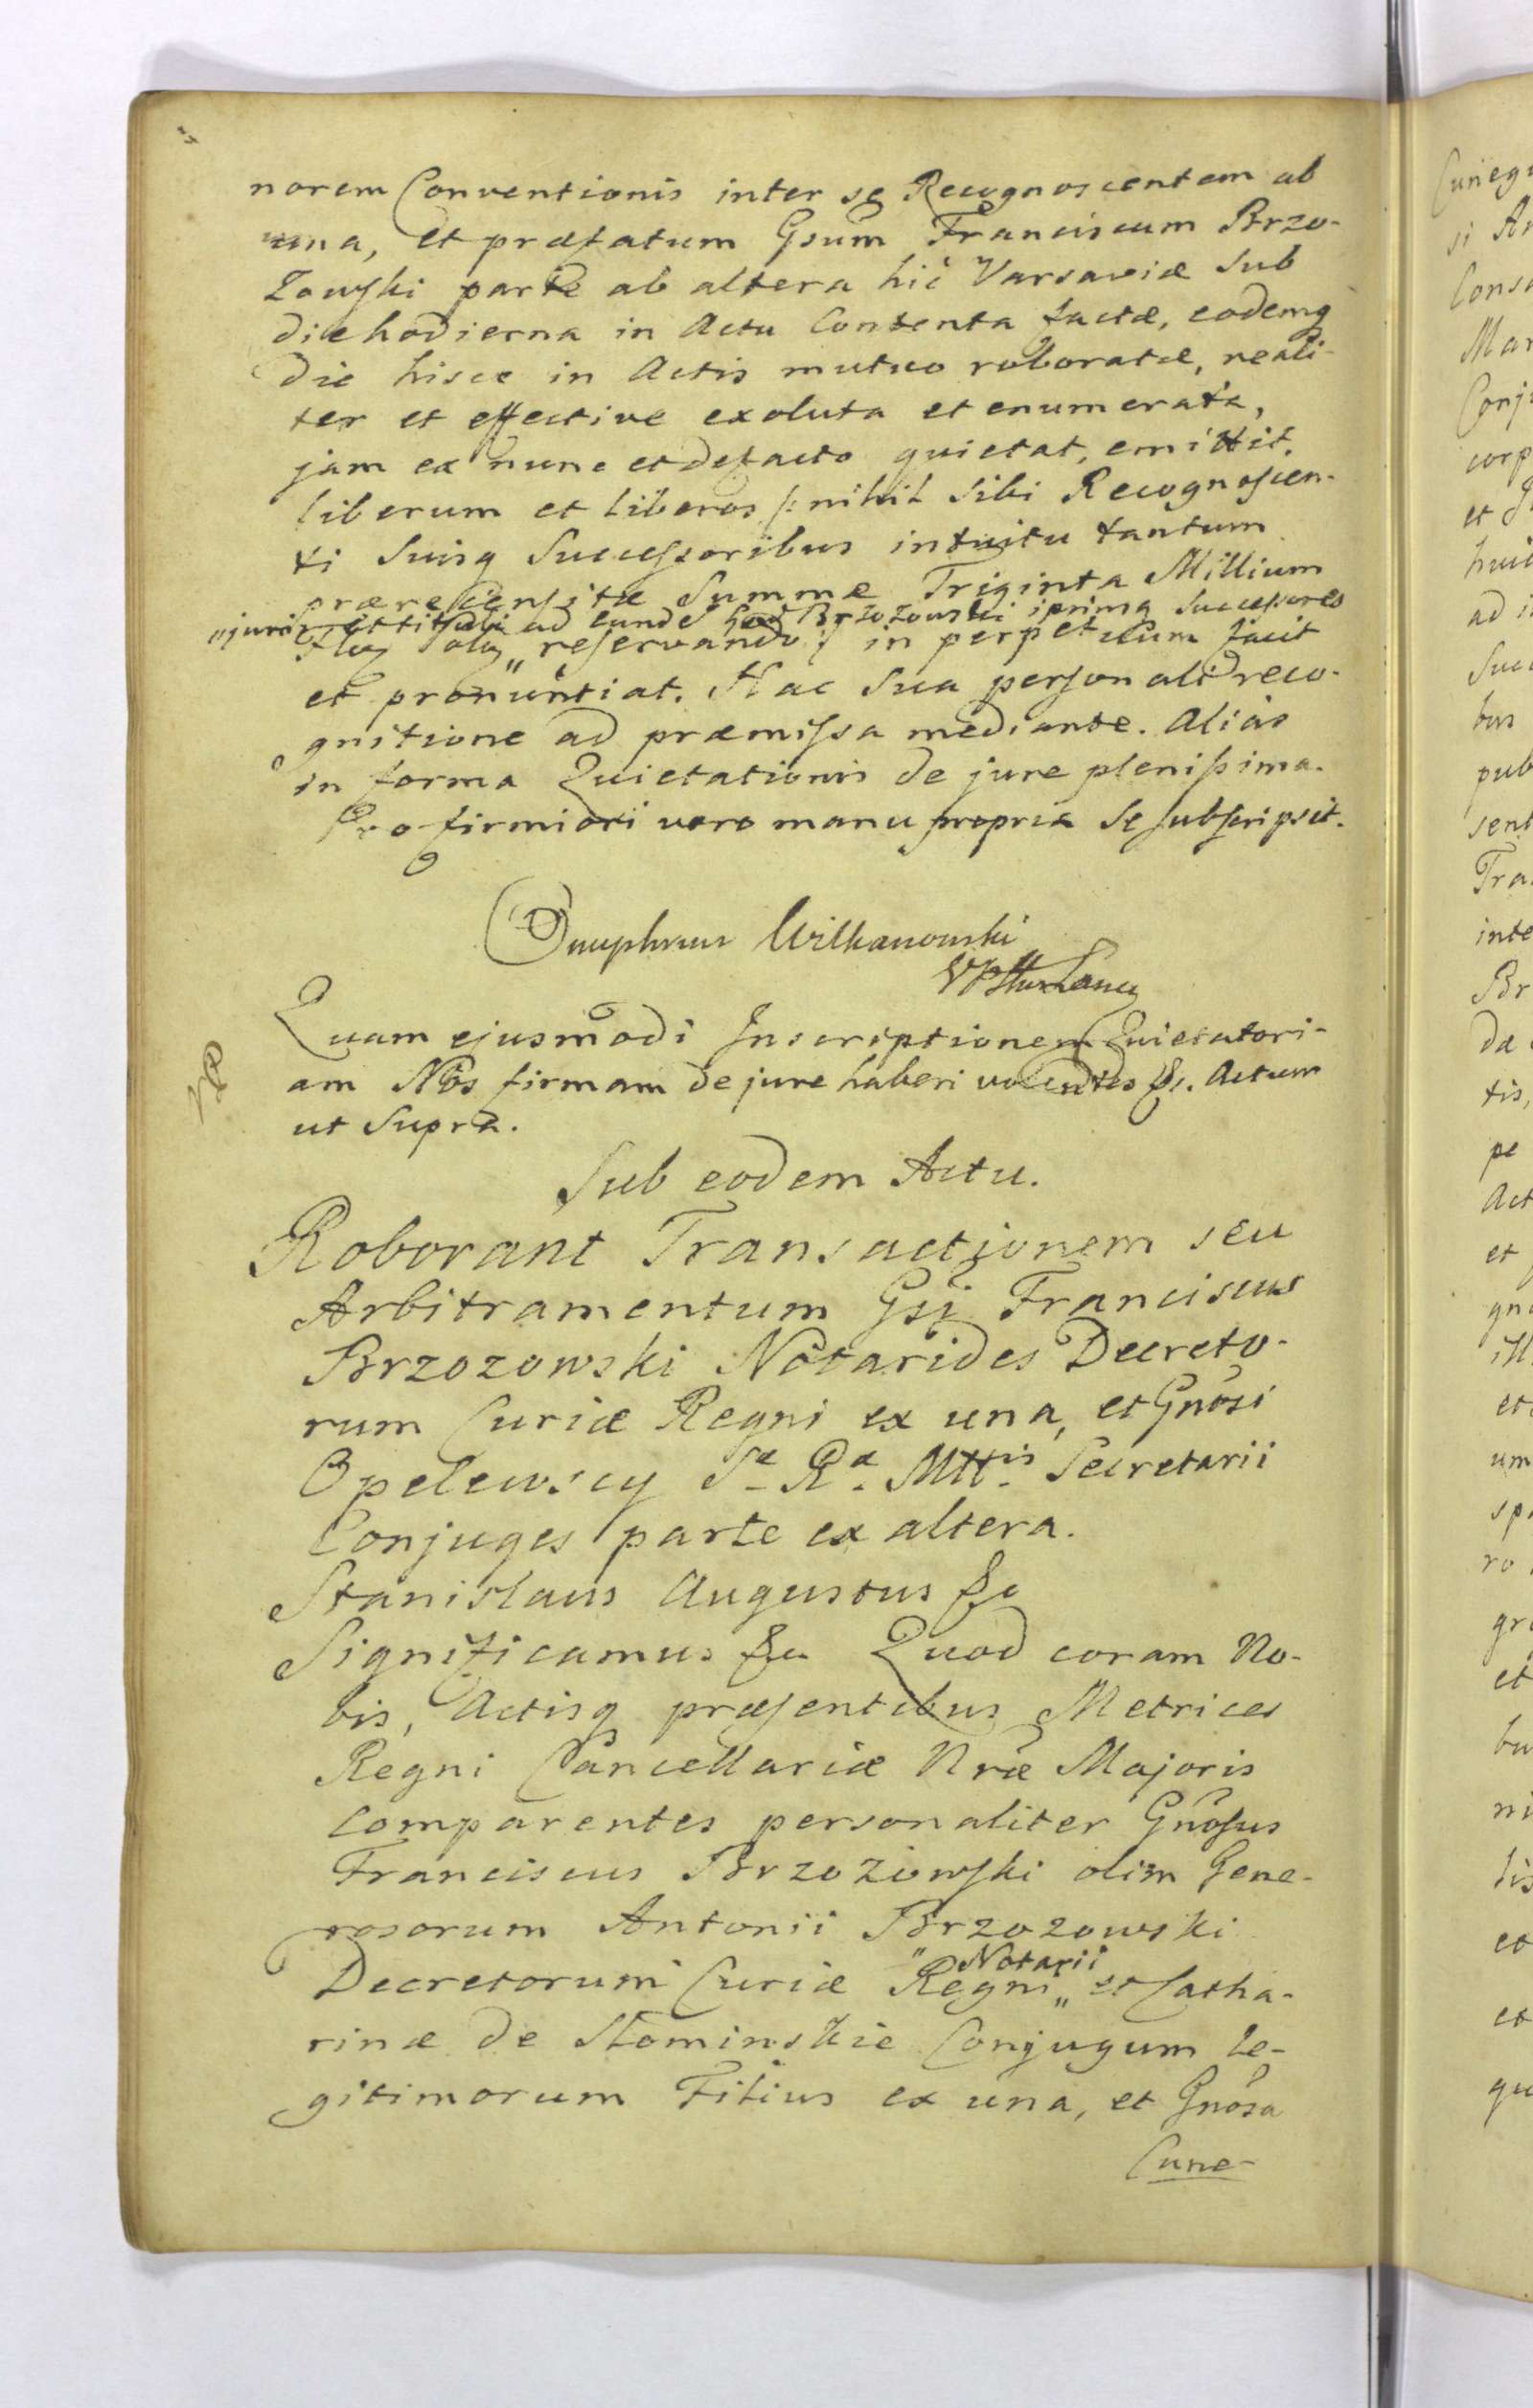 norem Conventionis inter se Recognoscentem ab
una, et præfatum Gsum Franciscum Brzo-
zowski parte ab altera hic Varsaviæ sub
die hodierna in Actu Contenta factæ, eodemq
die hisce in Actis mutuo roboratæ, reali-
ter et effective exoluta et enumerata,
jam ex nunc et de facto quietat, emittit.
liberum et liberos /: nihil Sibi Recognoscen-
ti Suisq Successoribus intuitu tantum
prærecensitæ Summæ Triginta Millium
juri ad eunde Brzozowski ipsimq Successores
reservando :/ in perpetuum facit
et pronuntiat. Hac Sua personali reco-
gnitione ad præmissa mediante. Alias
in forma Quietationis de jure plenissima.
Pro firmiori vero manu propria Se subscripsit.
Onuphrius Wilkanowski
Quam ejusmodi Inscriptionem Quietatori-
am Nos firmam de jure haberi volentes &c. Actum
ut Supra.
Sub eodem Actu.
Roborant Transactionem seu
Arbitramentum Gsi Franciscus
Brzozowski Notarides Decreto-
rum Curiæ Regni ex una, et Gnosi
Opelewscy Sæ Ræ Mttis Secretarii
Conjuges parte ex altera.
Stanislaus Augustus &c
Significamus &c Quod coram No-
bis, Actisq præsentibus Metrices
Regni Cancellariæ Nræ Majoris
comparentes personaliter Gnosus
Franciscus Brzozowski olim Gene-
rosorum Antonii Brzozowski
Notarii
Decretorum Curiæ "Regni" et Catha-
rinæ de Stominskie Conjugum le-
gitimorum Filius ex una, et Gnosa
Cune-